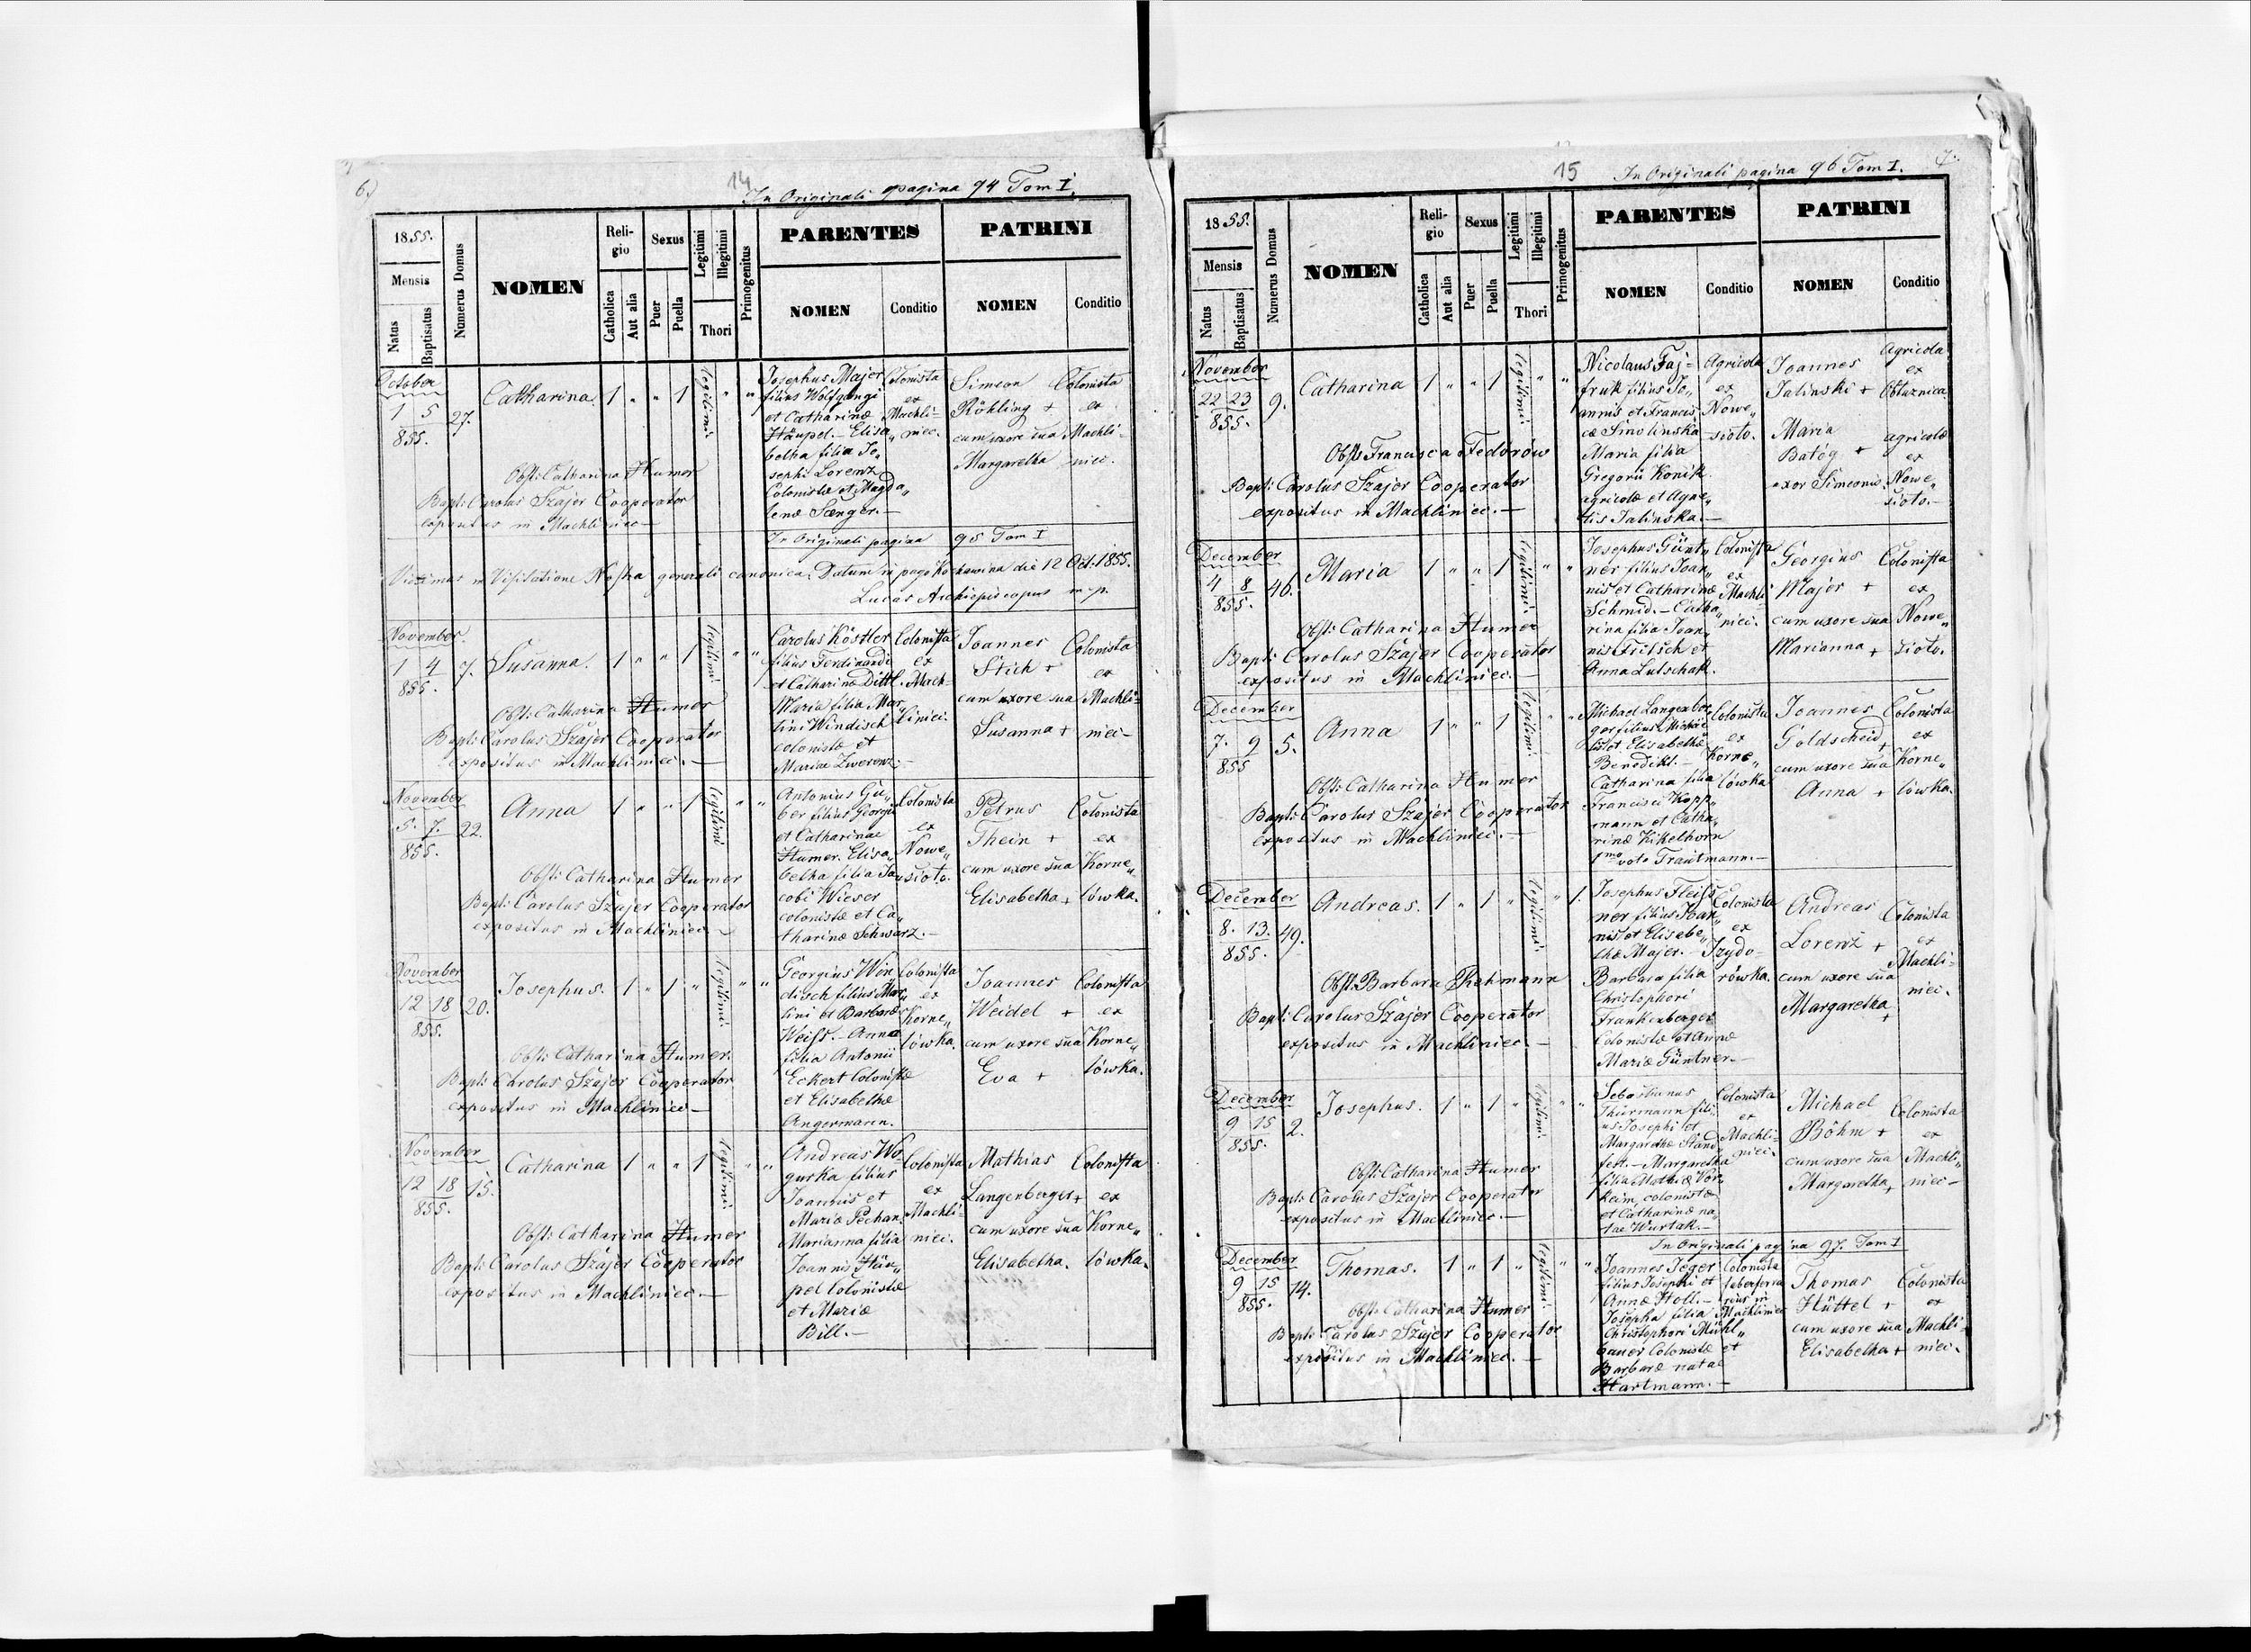 6.)
14
In Originali pagina 94 Tom I.
1855.
Mensis
Natus
Baptisatus
Numerus Domus
NOMEN
Reli-
gio
Catholica
Aut alia
Sexus
Puer
Puella
Legitimi
Illegitimi
Thori
Primogenitus
PARENTES
NOMEN
Conditio
PATRINI
NOMEN
Conditio
October
1 5
855.
27.
Catharina.
1 " " 1
legitimi
" "
Josephus Majer
filius Wolfgangi
et Catharinæ
Häupel. — Elisa„
betha filia Jo„
sephi Lorenz
Colonistæ et Magda„
lenæ Sænger. —
Colonista
ex
Machli-
niec.
Simeon
Röhling +
cum uxore sua
Margaretha
Colonista
ex
Machli-
niec.
Obst: Catharina Humer
Bapt: Carolus Szajer Cooperator
expositus in Machliniec —
In Originali pagina 95 Tom I
Vidimus in Visitatione Nostra generali canonica. Datum in pago Kochawina die 12 Oct. 1855.
Lucas Archiepiscopus m.p.
November
1 4
855.
7.
Susanna.
1 " " 1
legitimi
" "
Carolus Köstler
filius Ferdinandi
et Catharinæ Dittl.
Maria filia Mar„
tini Windisch
colonistæ et
Mariæ Zwerenz. —
Colonista
ex
Mach-
liniec.
Joannes
Stich +
cum uxore sua
Susanna +
Colonista
ex
Machli-
niec —
Obst: Catharina Humer
Bapt: Carolus Szajer Cooperator
expositus in Machliniec. —
November
5. 7.
855.
22.
Anna
1 " " 1
legitimi
" "
Antonius Gü„
ber filius Georgii
et Catharinae
Humer. Elisa„
betha filia Ja„
cobi Wieser
colonistæ et Ca„
tharinæ Schwarz. —
Colonista
ex
Nowe„
sioto.
Petrus
Thein +
cum uxore sua
Elisabetha +
Colonista
ex
Korne„
lówka.
Obst: Catharina Humer
Bapt: Carolus Szajer Cooperator
expositus in Machliniec —
November
12 18
855.
20.
Josephus.
1 " 1 "
legitimi
" "
Georgius Win
disch filius Mar„
tini et Barbaræ
Weiss. — Anna
filia Antonii
Eckert Colonistæ
et Elisabethæ
Angermann.
Colonista
ex
Korne„
lówka.
Joannes
Weidel +
cum uxore sua
Eva +
Colonista
ex
Korne„
lówka.
Obst: Catharina Humer.
Bapt: Carolus Szajer Cooperator
expositus in Machliniec —
November
12 18
855.
15.
Catharina
1 " " 1
legitimi
" "
Andreas Wo-
gurka filius
Joannis et
Mariæ Pechan.
Marianna filia
Joannis Häu„
pel Colonistæ
et Mariæ
Bill. —
Colonista
ex
Machli-
niec.
Mathias
Langenberger +
cum uxore sua
Elisabetha.
Colonista
ex
Korne„
lówka.
Obst: Catharina Humer
Bapt: Carolus Szajer Cooperator
expositus in Machliniec. —
15
In Originali pagina 96 Tom I.
7.
1855.
Mensis
Natus
Baptisatus
Numerus Domus
NOMEN
Reli-
gio
Catholica
Aut alia
Sexus
Puer
Puella
Legitimi
Illegitimi
Thori
Primogenitus
PARENTES
NOMEN
Conditio
PATRINI
NOMEN
Conditio
November
22 23
855.
9.
Catharina
1 " " 1
legitimi
" "
Nicolaus Faj-
fruk filius Jo-
annis et Francis
cæ Smolinska
Maria filia
Gregorii Konik
agricolæ et Agae„
tis Jalinska. —
Agricola
ex
Nowe„
sioto.
Joannes
Jalinski +
Maria
Batóg +
uxor Simeonis.
Agricola
ex
Obłaznica
agricolæ
ex
Nowe„
sioto. —
Obst: Francisca Fedórów
Bapt: Carolus Szajer Cooperator
expositus in Machliniec. —
December
4 8
855.
46.
Maria
1 " " 1
legitimi
" "
Josephus Günt„
ner filius Joan„
nis et Catharinæ
Schmid. — Catha„
rina filia Joan„
nis Tietsch et
Anna Lutschak.
Colonista
ex
Machli-
niec.
Georgius
Majer +
cum uxore sua
Marianna +
Colonista
ex
Nowe„
sioto.
Obst: Catharina Humer
Bapt: Carolus Szajer Cooperator
expositus in Machliniec. —
December
7. 9
855
5.
Anna
1 " " 1
legitimi
" "
Michael Langenber„
ger filius Michae„
lis et Elisabethæ
Benedikt. —
Catharina filia
Francisci Kopp„
mann et Catha„
rinæ Kikelhorn
1mo voto Trautmann. —
Colonista
ex
Korne„
lówka
Joannes
Goldscheid +
cum uxore sua
Anna +
Colonista
ex
Korne„
lówka.
Obst: Catharina Humer
Bapt: Carolus Szajer Cooperator
expositus in Machliniec. —
December
8. 13.
855.
49.
Andreas.
1 " 1 "
legitimi
" 1.
Josephus Fleiss
ner filius Joan„
nis et Elisabe„
thæ Majer. —
Barbara filia
Christophori
Frankenberger
Colonistæ et Annæ
Mariæ Güntner. —
Colonista
ex
Izydo-
rówka.
Andreas
Lorenz +
cum uxore sua
Margaretha +
Colonista
ex
Machli-
niec.
Obst: Barbara Rehmann
Bapt: Carolus Szajer Cooperator
expositus in Machliniec. —
December
9 15
855.
2.
Josephus.
1 " 1 "
legitimi
" "
Sebastianus
Thürmann fili-
us Josephi et
Margarethæ Stand„
fest. — Margaretha
filia Mathiæ Vor„
heim colonistæ
et Catharinæ na„
tae Wurtak. —
Colonista
ex
Machli-
niec.
Michael
Böhm +
cum uxore sua
Margaretha +
Colonista
ex
Machli„
niec —
Obst: Catharina Humer
Bapt: Carolus Szajer Cooperator
expositus in Machliniec. —
In Originali pagina 97. Tom I
December
9 15
855.
14.
Thomas.
1 " 1 "
legitimi
" "
Joannes Jeger
filius Josephi et
Annæ Holl. —
Josepha filia
Christophori Mühl„
bauer Colonistæ et
Barbaræ natae
Hartmann. —
Colonista
faber ferra
rius in
Machliniec
Thomas
Hüttel +
cum uxore sua
Elisabetha +
Colonista
ex
Machli-
niec.
Obst: Catharina Humer
Bapt: Carolus Szajer Cooperator
expositus in Machliniec. —